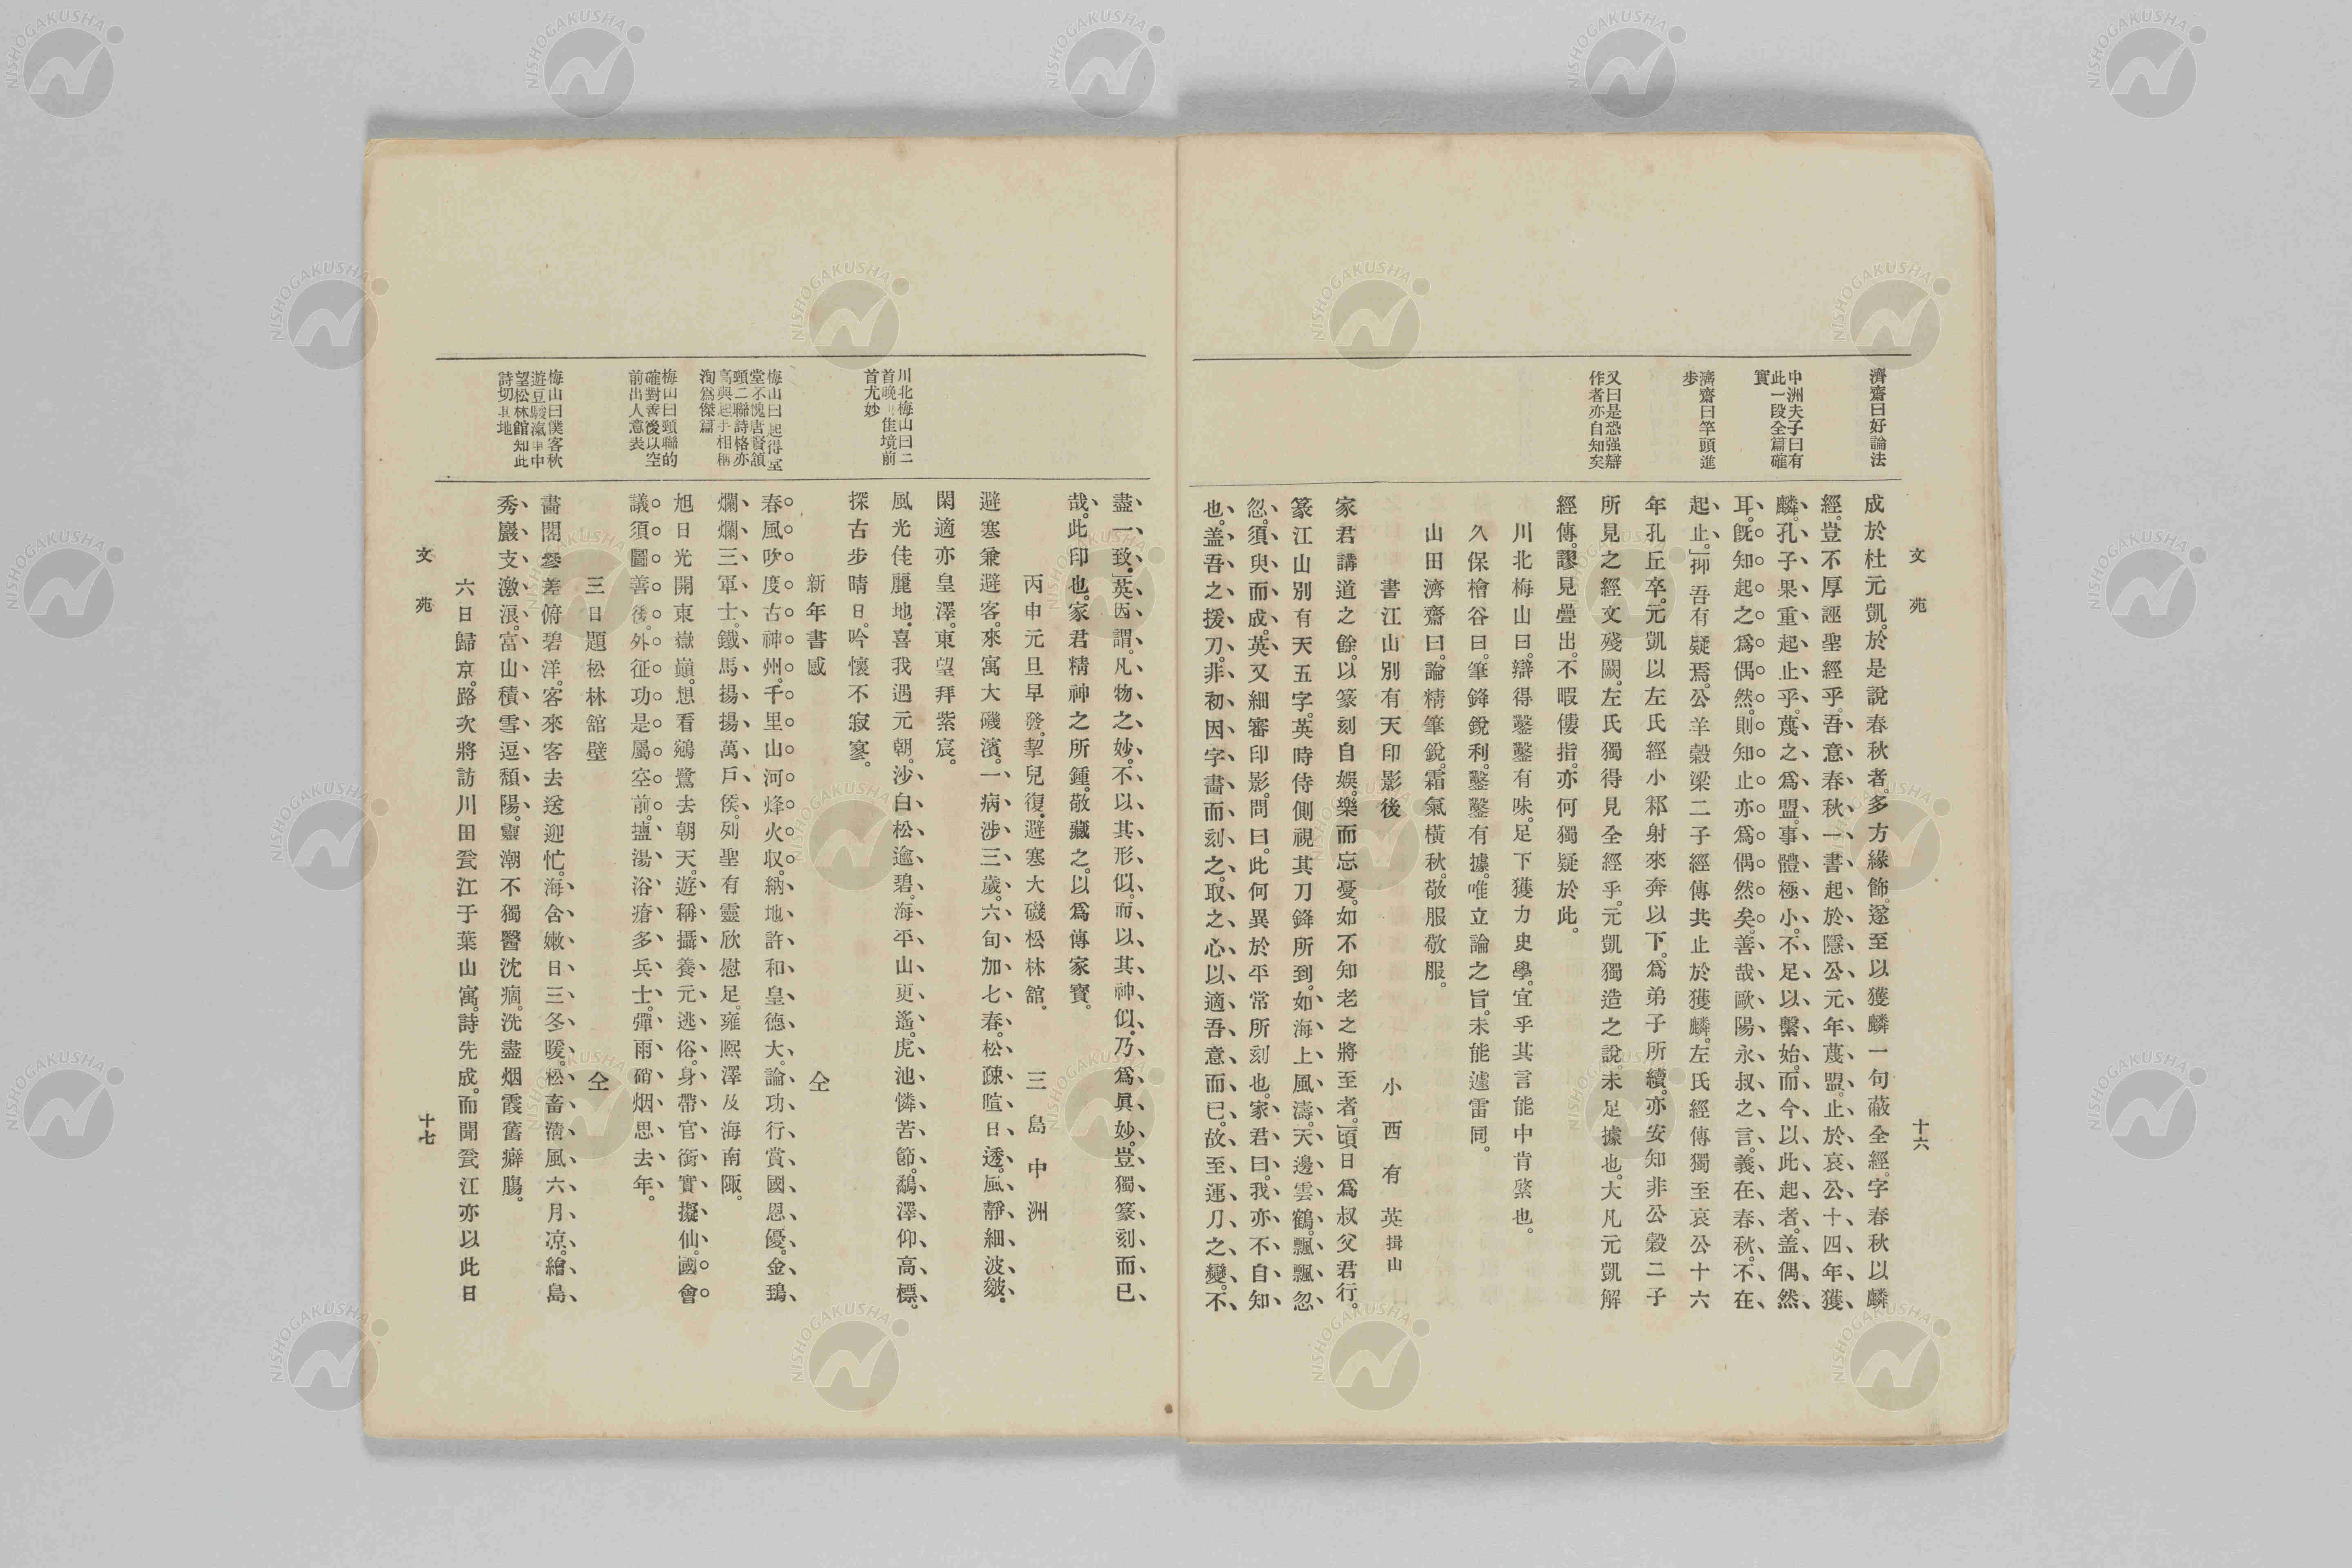 文苑
十六
濟齋曰好論法
中洲夫子曰有
此一段全篇確
實
濟齋曰竿頭進
步
又曰是恐强辯
作者亦自知矣
成於杜元凱。於是說春秋者。多方緣飾。遂至以獲麟一句蔽全經。字春秋以麟
經。豈不厚誣聖經乎。吾意春秋一書起於隱公元年蔑盟。止於哀公十四年獲
麟。孔子果重起止乎。蔑之爲盟。事體極小。不足以繫始。而今以此起者。盖偶然
耳。旣知起之爲偶然。則知止亦爲偶然矣。善哉歐陽永叔之言。義在春秋。不在
起止。」抑吾有疑焉。公羊穀梁二子經傳共止於獲麟。左氏經傳獨至哀公十六
年孔丘卒。元凱以左氏經小邾射來奔以下。爲弟子所續。亦安知非公穀二子
所見之經文殘闕。左氏獨得見全經乎。元凱獨造之說。未足據也。大凡元凱解
經傳。謬見疊出。不暇僂指。亦何獨疑於此。
川北梅山曰。辯得鑿鑿有味。足下獲力史學。宜乎其言能中肯綮也。
久保檜谷曰。筆鋒銳利。鑿鑿有據。唯立論之旨。未能遽雷同。
山田濟齋曰。論精筆銳。霜氣橫秋。敬服敬服。
書江山別有天印影後 小西有英揖山
家君講道之餘。以篆刻自娛。樂而忘憂。如不知老之將至者。」頃日爲叔父君行。
篆江山別有天五字。英時侍側視其刀鋒所到。如海上風濤。天邊雲鶴。飄飄忽
忽。須臾而成。英又細審印影。問曰。此何異於平常所刻也。家君曰。我亦不自知
也。盖吾之援刀。非初因字畫而刻之。取之心以適吾意而已。故至運刀之變。不
盡一致。」英因謂。凡物之妙。不以其形似。而以其神似。乃爲眞妙。豈獨篆刻而已
哉。此印也。家君精神之所鍾。敬藏之。以爲傳家寶。
丙申元旦早發。挈兒復。避寒大磯松林舘。 三島中洲
避寒兼避客。來寓大磯濱。一病涉三歲。六旬加七春。松疎暄日透。風靜細波皴。
閑適亦皇澤。東望拜紫宸。
風光佳麗地。喜我遇元朝。沙白松逾碧。海平山更遙。虎池憐苦節。鷸澤仰高標。
探古步晴日。吟懷不寂寥。
新年書感 仝
春風吹度古神州。千里山河烽火收。納地許和皇德大。論功行賞國恩優。金鵄
爛爛三軍士。鐵馬揚揚萬戶侯。列聖有靈欣慰足。雍熙澤及海南陬。
旭日光開東嶽巓。想看鵷鷺去朝天。遊稱攝養元逃俗。身帶官銜實擬仙。國會
議須圖善後。外征功是屬空前。塩湯浴瘡多兵士。彈雨硝烟思去年。
三日題松林舘壁 仝
畵閣參差俯碧洋。客來客去送迎忙。海含嫩日三冬暖。松畜淸風六月凉。繪島
秀巖支激浪。富山積雪逗頹陽。靈潮不獨醫沈痼。洗盡烟霞舊癖膓。
六日歸京。路次將訪川田瓮江于葉山寓。詩先成。而聞瓮江亦以此日
川北梅山曰二
首晚佳境前
首尤妙
梅山曰起得堂
堂不愧唐賢頷
頸二聯詩格亦
高與起手相稱
洵爲傑篇
梅山曰頸聯的
確對善後以空
前出人意表
梅山曰僕客秋
遊豆駿瀛車中
望松林館知此
詩切其地
文苑
十七